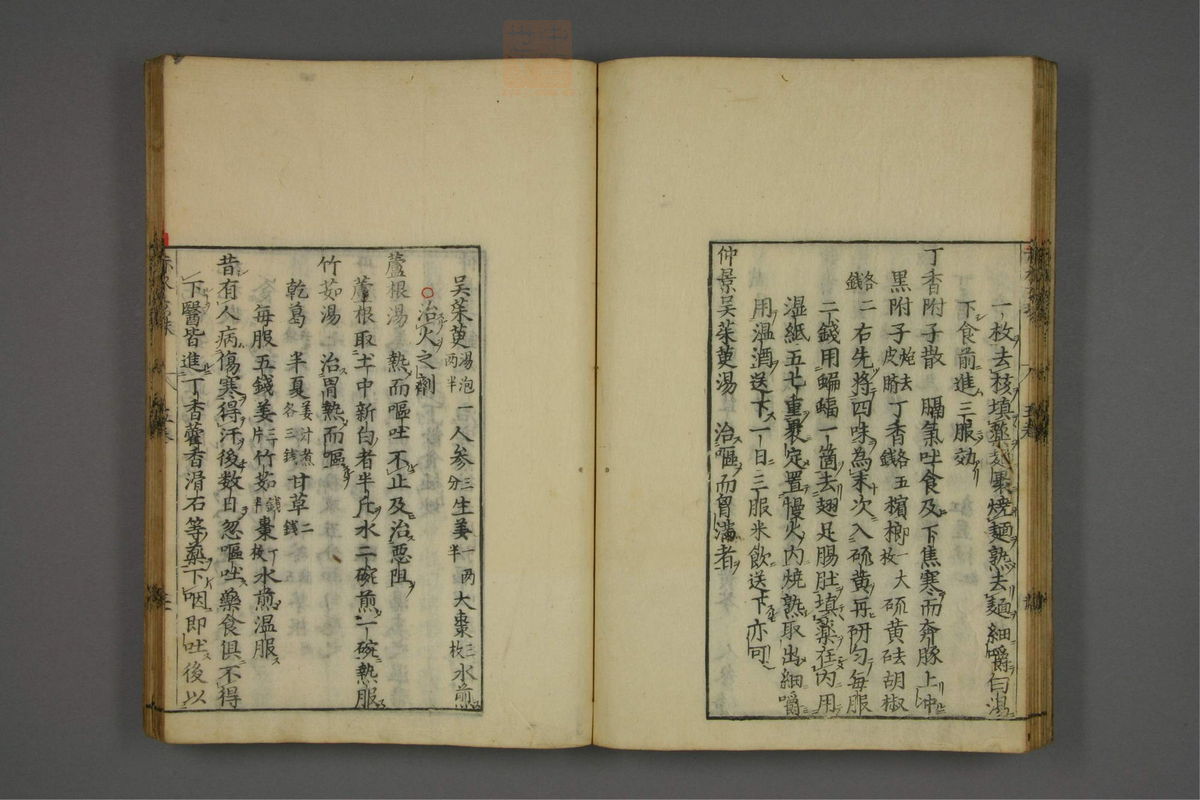 一枚去核填藥麪裹燒麵熟去麵細嚼白湯
下食前進三服効
丁香附子散 膈氣吐食及下焦寒而奔豚上冲
黑附子炮去皮臍丁香錢五檳榔一枚大硫黃砝胡椒
各二錢右先將四味為末次入硫黃再研勻每服
二錢用蝙蝠一箇去翅足腸肚填藥在內用
濕紙五七重裹定置慢火內燒熟取出細嚼
用温酒送下一日三服米飲送下亦可
仲景吳茱萸湯 治嘔而胷滿者
吳茱萸湯泡兩半一人參三分生姜一兩半大棗三枚水煎
○治火之劑
蘆根湯 熱而嘔吐不止及治惡阻
蘆根取土中新白者半斤水二碗煎一碗熱服
竹茹湯 治胃熱而嘔
乾葛 半夏姜汁煮各三錢甘草二錢
每服五錢姜三片竹茹錢半棗一枚水煎温服
昔有人病傷寒得汗後數日忽嘔吐藥食俱不得
下醫皆進丁香藿香滑石等藥下咽即吐後以